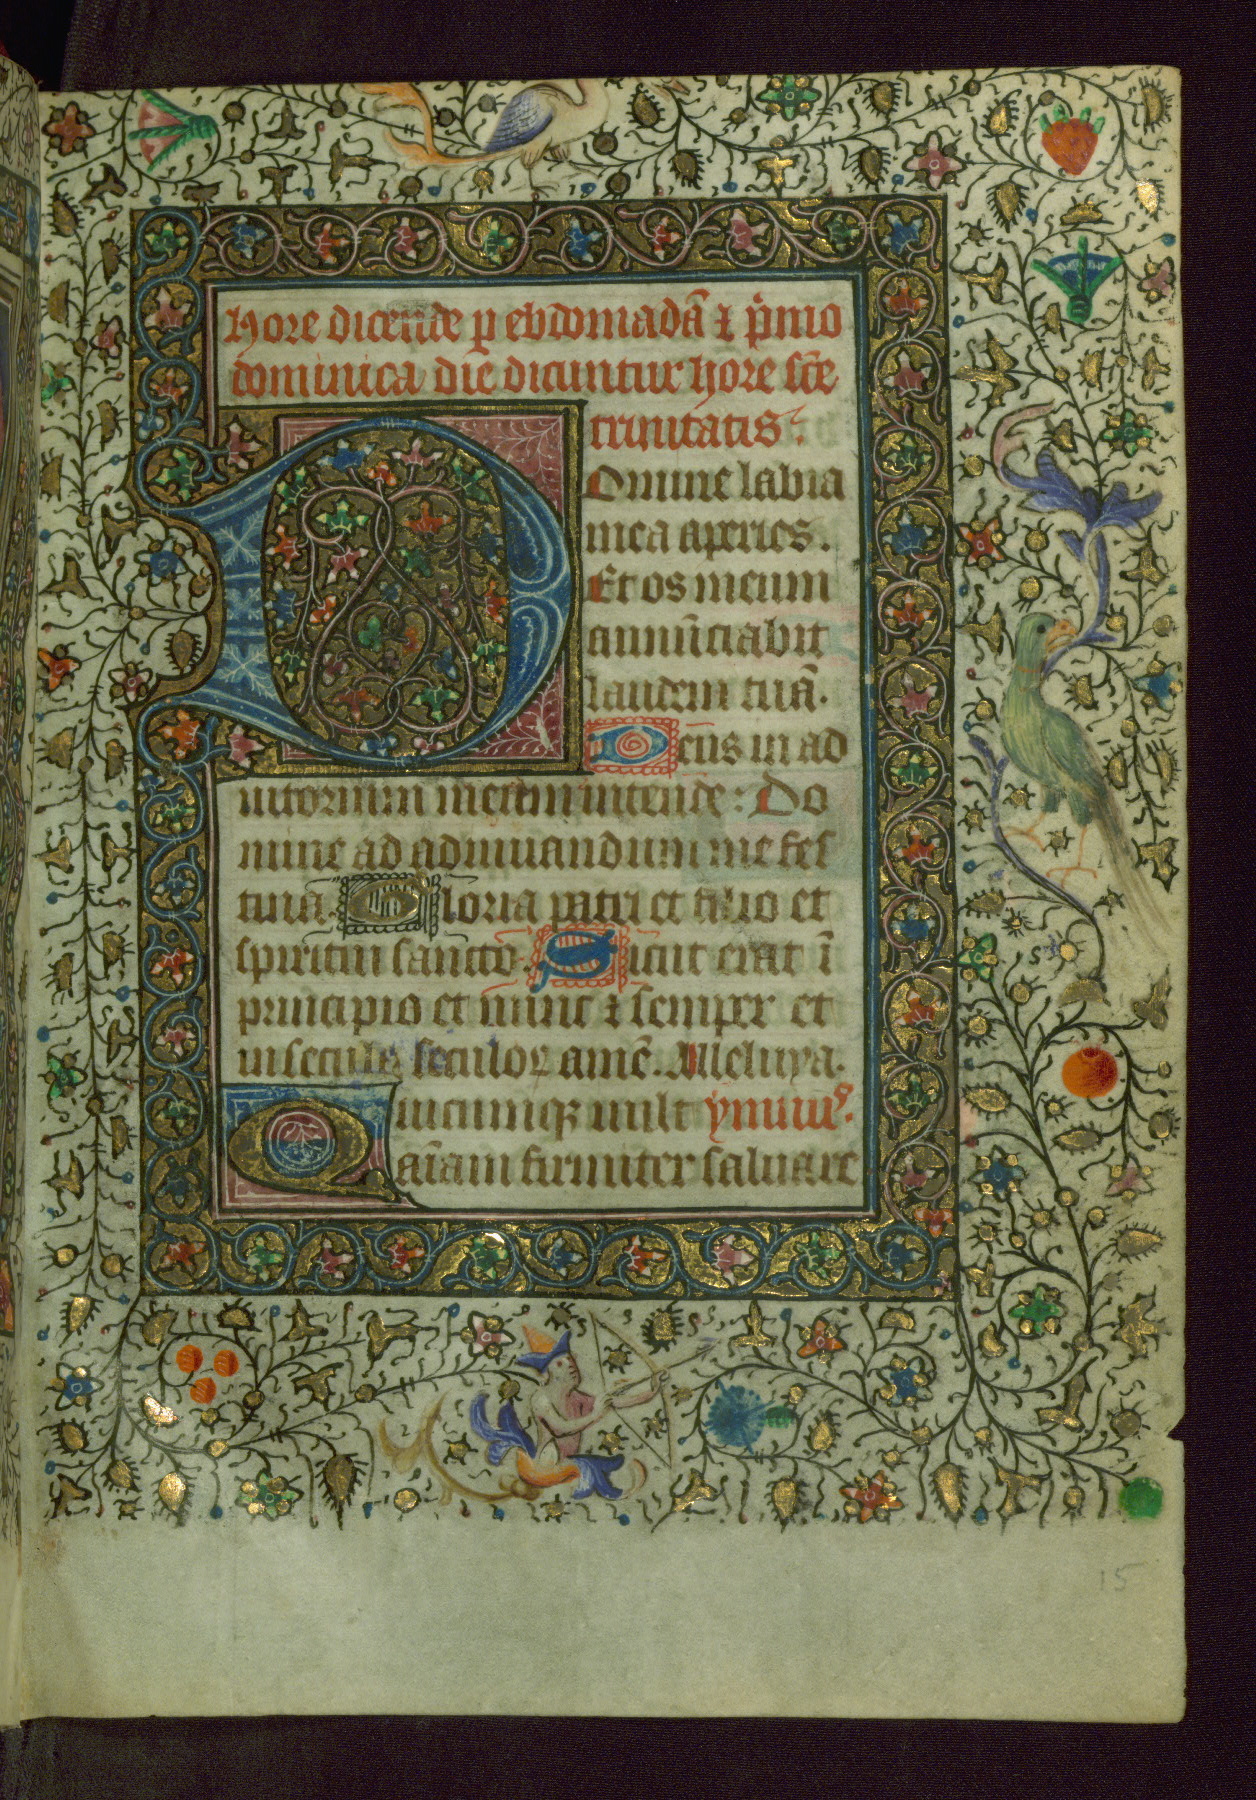 Hore dicende ꝑ ebdomadā ⁊ p̄mo
dominica die dicuntur hore sc̄e
trinitatis.
Domine labia
mea aperies.
Et os meum
annūciabit
laudem tuā.
Deus in ad
iutorium meum intende: Do
mine ad adiuuandum me fes
tina. Gloria patri et filio et
spiritui sancto. Sicut erat ī
principio et nunc ⁊ semper et
in secula seculoꝝ amē. Alleluya.
Quicumqꝫ uult ẏmnus.
aīam firmiter saluare
15